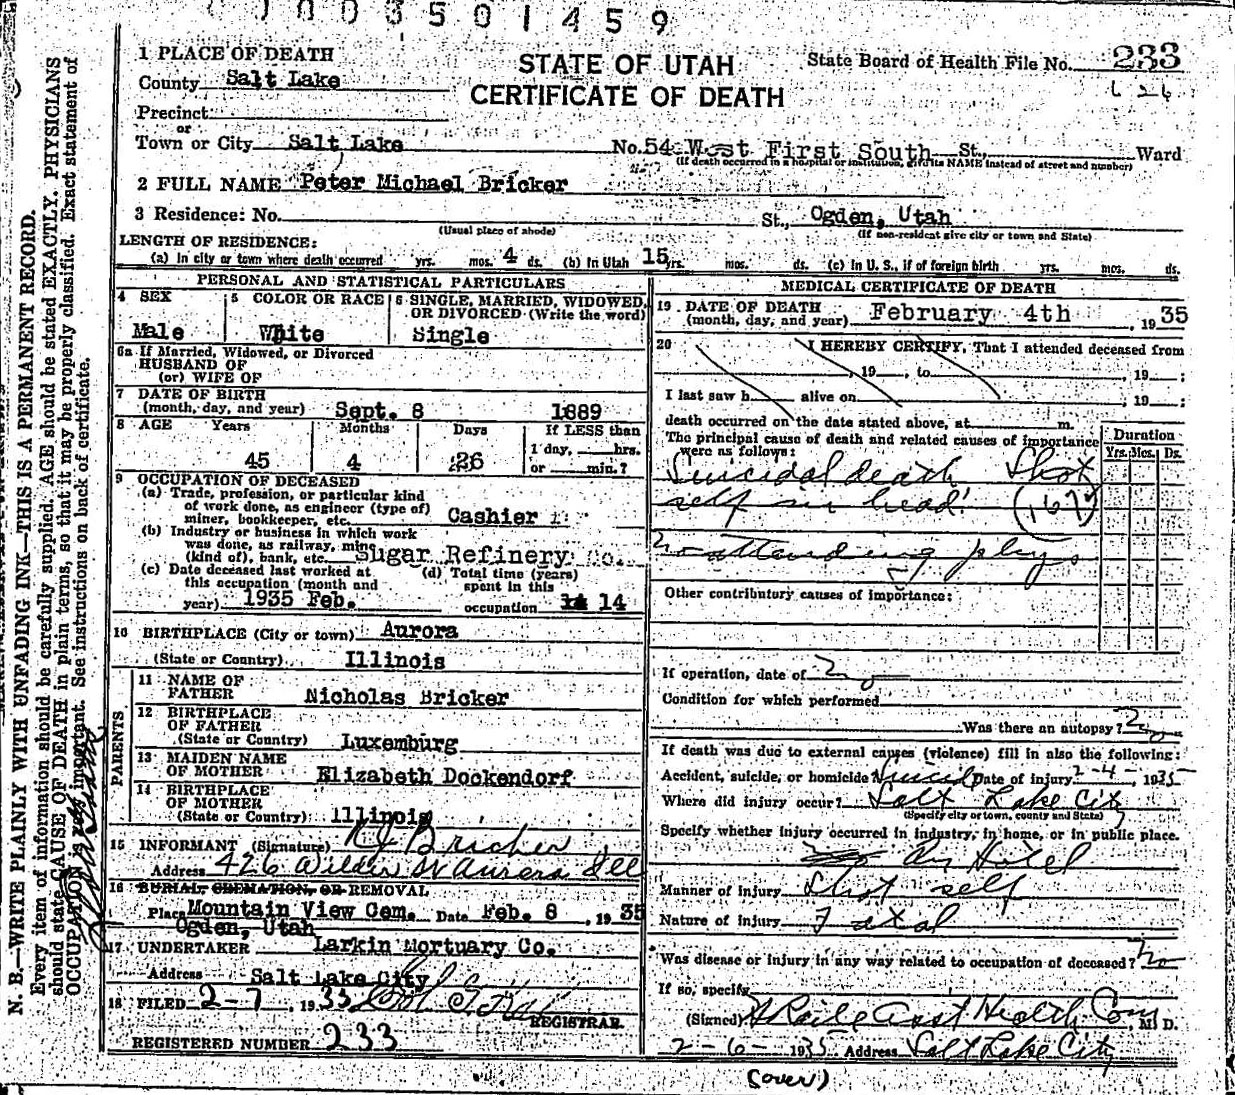 0003501459
1 PLACE OF DEATH
County Salt Lake
Precinct
or
Town or City Salt Lake
STATE OF UTAH
CERTIFICATE OF DEATH
State Board of Health File No. 233
No. 54 West First South St., Ward
(If death occurred in a hospital or institution, give its NAME instead of street and number)
2 FULL NAME Peter Michael Bricker
3 Residence: No. St., Ogden, Utah
(Usual place of abode) (If non-resident give city or town and State)
LENGTH OF RESIDENCE:
(a) In city or town where death occurred yrs. mos. 4 ds. (b) In Utah 15 yrs. mos. ds. (c) In U. S., if of foreign birth yrs. mos. ds.
PERSONAL AND STATISTICAL PARTICULARS
4 SEX
Male
5 COLOR OR RACE
White
6 SINGLE, MARRIED, WIDOWED, OR DIVORCED (Write the word)
Single
6a If Married, Widowed, or Divorced
HUSBAND OF
(or) WIFE OF
7 DATE OF BIRTH
(month, day, and year) Sept. 8 1889
8 AGE Years Months Days If LESS than
45 4 26 1 day, hrs.
or min.?
9 OCCUPATION OF DECEASED
(a) Trade, profession, or particular kind
of work done, as engineer (type of)
miner, bookkeeper, etc. Cashier
(b) Industry or business in which work
was done, as railway, mine
(kind of), bank, etc. Sugar Refinery Co.
(c) Date deceased last worked at
this occupation (month and
year) 1935 Feb.
(d) Total time (years)
spent in this
occupation 14
10 BIRTHPLACE (City or town) Aurora
(State or Country) Illinois
PARENTS
11 NAME OF
FATHER Nicholas Bricker
12 BIRTHPLACE
OF FATHER
(State or Country) Luxemburg
13 MAIDEN NAME
OF MOTHER Elizabeth Dockendorf
14 BIRTHPLACE
OF MOTHER
(State or Country) Illinois
15 INFORMANT (Signature) N J Bricker
Address 426 Wilder St Aurora Ill
16 BURIAL, CREMATION, OR REMOVAL
Place Mountain View Cem. Date Feb. 8, 1935
Ogden, Utah
17 UNDERTAKER Larkin Mortuary Co.
Address Salt Lake City
18 FILED 2-7, 1935
REGISTRAR.
REGISTERED NUMBER 233
MEDICAL CERTIFICATE OF DEATH
19 DATE OF DEATH
(month, day, and year) February 4th, 1935
20 I HEREBY CERTIFY, That I attended deceased from
, 19 , to , 19 ;
I last saw h alive on , 19 ;
death occurred on the date stated above, at m.
The principal cause of death and related causes of importance
were as follows:
Duration
Yrs. Mos. Ds.
Suicidal death Shot
self in head. (167)
no attending phys.
Other contributory causes of importance:
If operation, date of No
Condition for which performed
Was there an autopsy? No
If death was due to external causes (violence) fill in also the following:
Accident, suicide, or homicide Suicide Date of injury 2-4-, 1935
Where did injury occur? Salt Lake City
(Specify city or town, county and State)
Specify whether injury occurred in industry, in home, or in public place.
Hotel
Manner of injury Shot self
Nature of injury Fatal
Was disease or injury in any way related to occupation of deceased? No
If so, specify
(Signed) Asst Health Com, M. D.
2-6-1935 Address Salt Lake City
(over)
N. B.—WRITE PLAINLY WITH UNFADING INK—THIS IS A PERMANENT RECORD.
Every item of information should be carefully supplied. AGE should be stated EXACTLY. PHYSICIANS
should state CAUSE OF DEATH in plain terms, so that it may be properly classified. Exact statement of
OCCUPATION is important. See instructions on back of certificate.